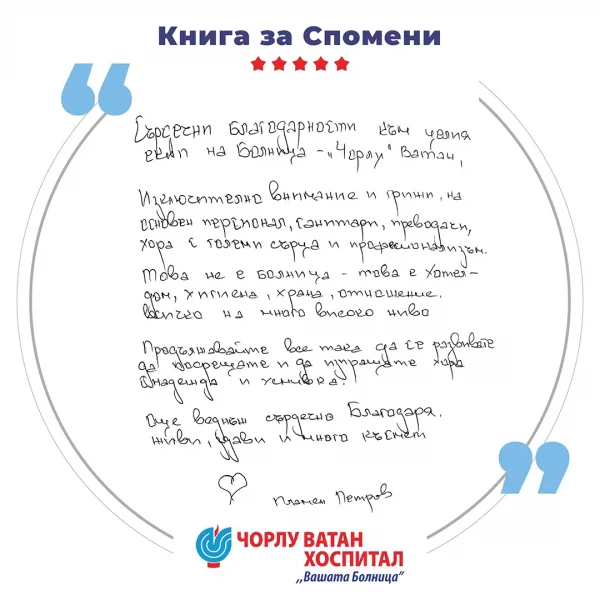 Книга за Спомени
Сърдечни благодарности към целия
екип на Болница - „Чорлу" Ватан,
Изключително внимание и грижи, на
основен персонал, санитари, преводачи,
хора с големи сърца и професионализъм.
Това не е болница - това е хотел-
дом, хигиена, храна, отношение.
всичко на много високо ниво
Продължавайте все така да се развивате
да посрещате и да изпращате хора
с надежда и усмивка.
Още веднъж сърдечно Благодаря.
живи, здрави и много късмет
Пламен Петров
ЧОРЛУ ВАТАН
ХОСПИТАЛ
„Вашата Болница"